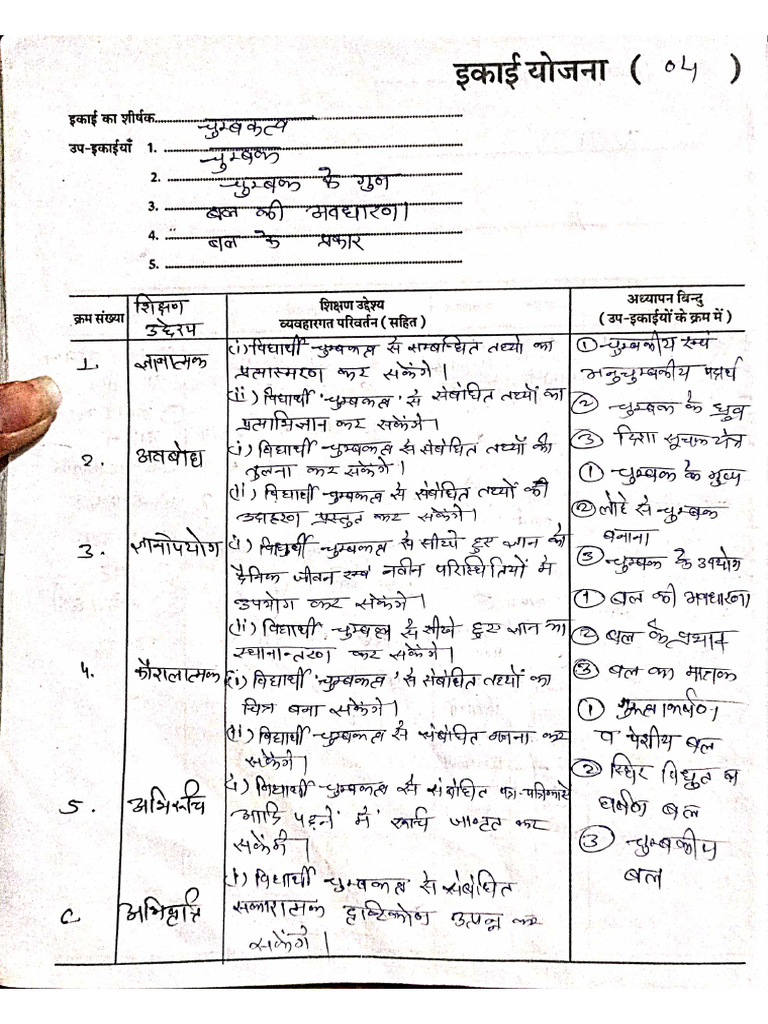 इकाई योजना ( 04 )
इकाई का शीर्षक चुम्बकत्व
उप-इकाईयाँ 1. चुम्बक
2. चुम्बक के गुण
3. बल की अवधारणा
4. बल के प्रकार
5.
क्रम संख्या
शिक्षण
उद्देश्य
शिक्षण उद्देश्य
व्यवहारगत परिवर्तन ( सहित )
अध्यापन बिन्दु
( उप-इकाईयों के क्रम में )
1. ज्ञानात्मक
(i) विद्यार्थी चुम्बकत्व से सम्बन्धित तथ्यो का
प्रत्यास्मरण कर सकेंगे।
(ii) विद्यार्थी 'चुम्बकत्व' से संबंधित तथ्यों का
प्रत्याभिज्ञान कर सकेंगे।
2. अवबोध
(i) विद्यार्थी चुम्बकत्व से संबंधित तथ्यों की
तुलना कर सकेंगे।
(ii) विद्यार्थी चुम्बकत्व से संबंधित तथ्यों की
उदाहरण प्रस्तुत कर सकेंगे।
3. ज्ञानोपयोग
(i) विद्यार्थी चुम्बकत्व से सीखे हुए ज्ञान को
दैनिक जीवन एवं नवीन परिस्थितियों में
उपयोग कर सकेंगे।
(ii) विद्यार्थी चुम्बकत्व से सीखे हुए ज्ञान का
स्थानान्तरण कर सकेंगे।
4. कौशलात्मक
(i) विद्यार्थी 'चुम्बकत्व' से संबंधित तथ्यों का
चित्र बना सकेंगे।
(ii) विद्यार्थी चुम्बकत्व से संबंधित गणना कर
सकेंगे।
5. अभिरूचि
(i) विद्यार्थी चुम्बकत्व से संबंधित पत्र-पत्रिकाये
आदि पढ़ने में रूचि जाग्रत कर
सकेंगे।
6 अभिवृत्ति
(i) विद्यार्थी चुम्बकत्व से संबंधित
सकारात्मक दृष्टिकोण उत्पन्न कर
सकेंगे।
① चुम्बकीय एवं
अनुचुम्बकीय पदार्थ
② चुम्बक के ध्रुव
③ दिशा सूचक यंत्र
① चुम्बक के
② लोहे से चुम्बक
बनाना
③ चुम्बक के उपयोग
① बल की अवधारणा
② बल के प्रभाव
③ बल का मात्रक
① गुरुत्वाकर्षण
व पेशीय बल
② स्थिर विद्युत व
घर्षण बल
③ चुम्बकीय
बल